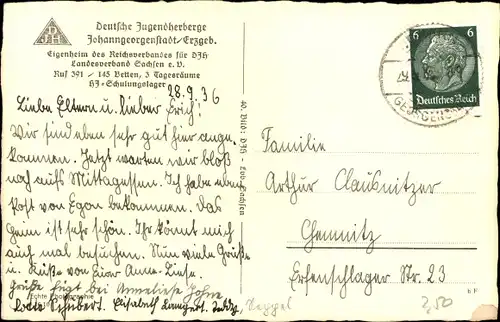 DJH
Deutsche Jugendherberge
Johanngeorgenstadt/Erzgeb.
Eigenheim des Reichsverbandes für DJH
Landesverband Sachsen e. V.
Ruf 391 / 145 Betten, 3 Tagesräume
HJ-Schulungslager
28.9.36
Liebe Eltern u. lieber Erich!
Wir sind eben sehr gut hier ange-
kommen. Jetzt warten wir bloß
noch aufs Mittagessen. Ich habe eben
Post von Egon bekommen. Das
Heim ist sehr schön. Ihr könnt mich
auch mal besuchen. Nun viele Grüße
u. Küsse von Eurer Anne-Liese.
Grüße fügt bei Anneliese
Echte Photographie
Lotte Schubert. Elisabeth
6 6
Deutsches Reich
Familie
Arthur Clausnitzer
Chemnitz
Erfenschlager Str. 23
2,50